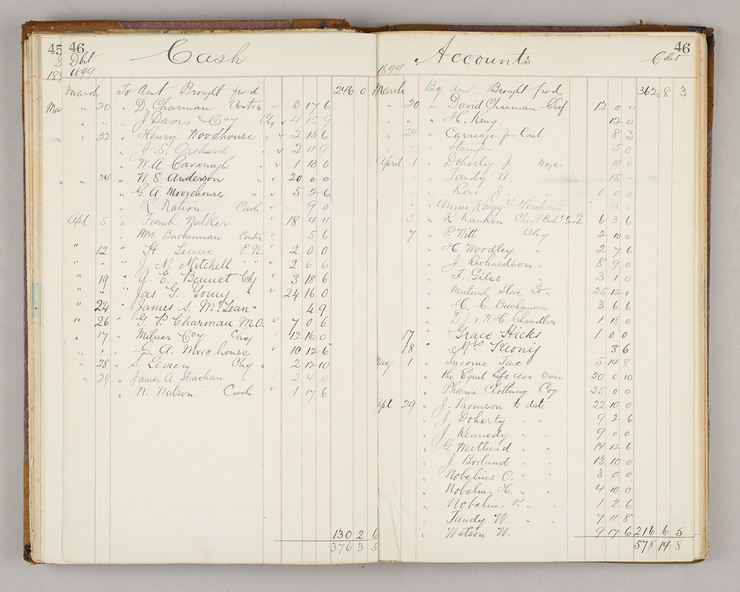 45 46 Dbt Cash
1899
March To Amt Brought fwd 246 0
" 20 " D. Charman Contra 3 17 6
" " " J Davis Coy Chq 4 15 9
" 22 " Henry Woodhouse " 2 13 6
" J. S. Orchard " 2 11 9
" W. A. Cavanagh " 1 13 0
" 24 " W. S. Anderson " 20 0 0
" G A Moorehouse " 5 2 6
" R Nation Cash 9 0
Apl 5 " Frank Walker " 18 4 11
" Mrs Buchannan Contra 5 6
" 12 " H. P.N. 2 0 0
" " J. M. Mitchell " " 2 6 6
" 19 " E. Bennet Chq 3 18 6
" " Jas G. " 24 16 0
" 24 " James S. McLean " 4 9
" 26 " G. P. Charman M.O. 7 0 6
" 17 " Milner Coy 12 16 0
" " G. A. Moorehouse " 10 12 6
" 28 " S. Levien Chq 2 12 10
" 29 " James A Strachan " 2 4 0
" W. Watson Cash 1 17 6
130 2 6
376 3 5
Accounts Cdit 46
1899
March By amt Brought fwd 362 8 3
" 20 " David Charman Chq 12 0 0
" " " H. King 12 0
" 24 " Carriage p. Rail 8 3
" Stamps 5 0
April 1 " Doherty J Wages
" Tandy W " 15
" " 1 0 0
" Annie
" 5 " R Rankin 6 3 6
" 7 " P Witt Chq 2 10 0
" H Woodley 2 7 6
" J Richardson 8 9 0
" T. Giles 3 1 0
" Mutual Store 25 12 0
" H. C. Buchanan 3 6 6
" & W. H. Chandler 1 13 0
17 " Grace Hicks 1 0 0
18 " Strong 3 6
May 1 " Income Tax 5 14 8
" The Equit Life 20 0 10
" Phoenix Clothing Coy 25 0 0
Apl 29 " J. Thomson to date 22 10 0
" J Doherty " " 9 2 6
" J Kennedy " " 9 0 0
" G Westlund " " 14 12 6
" J Borland " " 13 10 0
" Nobelius O. " " 3 0 0
" Nobelius H. " " 4 10 0
" Nobelius P. " " 1 2 6
" Tandy W " " 7 11 8
" Watson W. 9 17 6 216 6 5
578 14 8